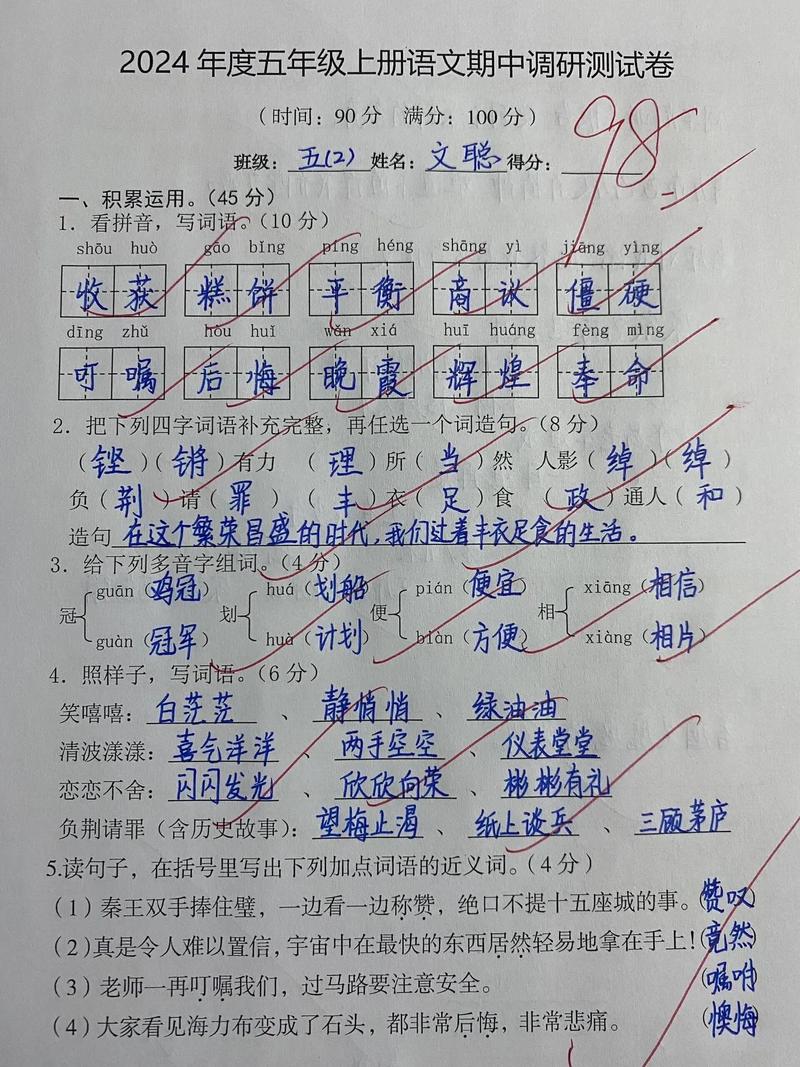 2024 年度五年级上册语文期中调研测试卷
（时间：90 分 满分：100 分）
98
班级：五(2) 姓名：文聪 得分：
一、积累运用。（45 分）
1. 看拼音，写词语。（10 分）
shōu huò gāo bǐng píng héng shāng yì jiāng yìng
收获 糕饼 平衡 商议 僵硬
dīng zhǔ hòu huǐ wǎn xiá huī huáng fèng mìng
叮嘱 后悔 晚霞 辉煌 奉命
2. 把下列四字词语补充完整，再任选一个词造句。（8 分）
（铿）（锵）有力 （理）所（当）然 人影（绰）（绰）
负（荆）请（罪） （丰）衣（足）食 （政）通人（和）
造句 在这个繁荣昌盛的时代，我们过着丰衣足食的生活。
3. 给下列多音字组词。（4 分）
guān（鸡冠） huá（划船） pián（便宜） xiāng（相信）
冠 划 便 相
guàn（冠军） huà（计划） biàn（方便） xiàng（相片）
4. 照样子，写词语。（6 分）
笑嘻嘻：白茫茫 、 静悄悄 、 绿油油
清波漾漾：喜气洋洋 、 两手空空 、 仪表堂堂
恋恋不舍：闪闪发光 、 欣欣向荣 、 彬彬有礼
负荆请罪（含历史故事）：望梅止渴 、 纸上谈兵 、 三顾茅庐
5.读句子，在括号里写出下列加点词语的近义词。（4 分）
（1）秦王双手捧住璧，一边看一边称赞，绝口不提十五座城的事。（赞叹）
（2）真是令人难以置信，宇宙中在最快的东西居然轻易地拿在手上！（竟然）
（3）老师一再叮嘱我们，过马路要注意安全。（嘱咐）
（4）大家看见海力布变成了石头，都非常后悔，非常悲痛。（懊悔）